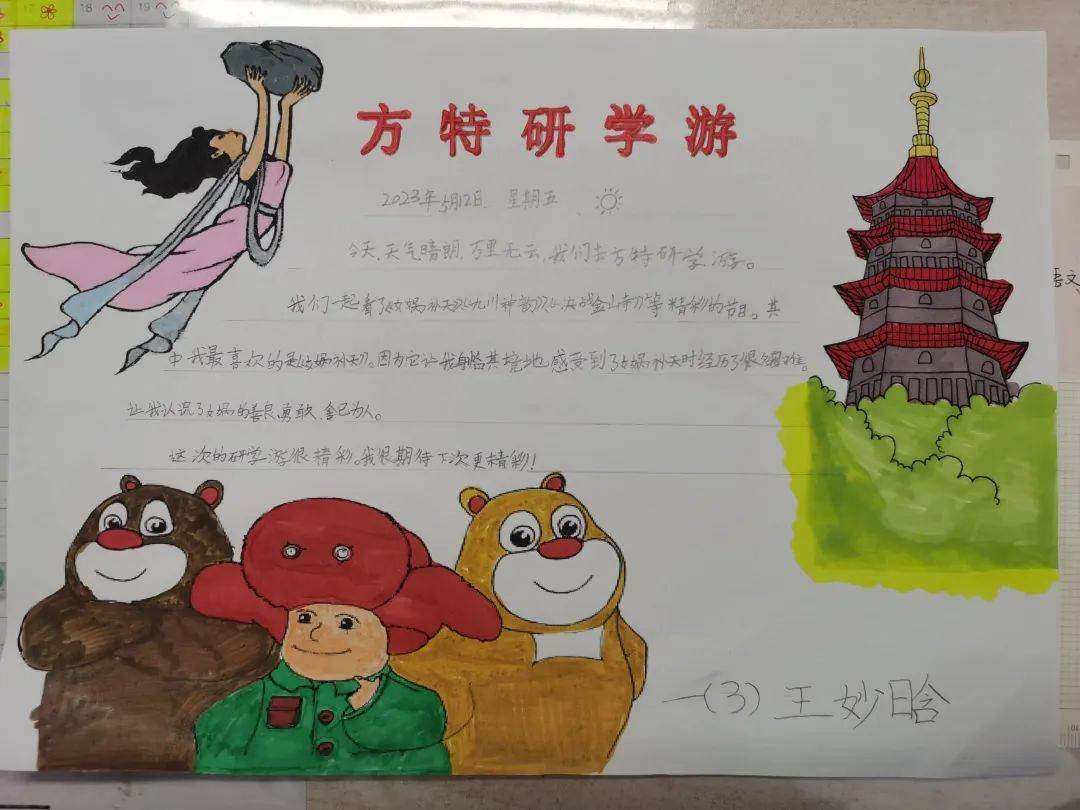 17 18 19
方特研学游
2023年5月12日 星期五
今天,天气晴朗,万里无云,我们去方特研学游。
我们一起看了《女娲补天》《九州神韵》《决战金山寺》等精彩的节目。其
中我最喜欢的是《女娲补天》。因为它让我身临其境地感受到了女娲补天时经历了很多困难。
让我认识了女娲的善良、勇敢、舍己为人。
这次的研学游很精彩。我很期待下次更精彩!
一(3)王妙晗
语文